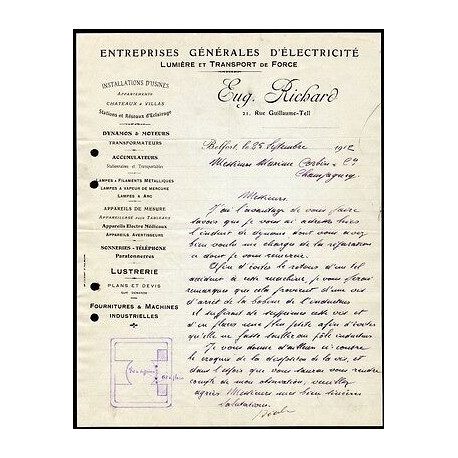 ENTREPRISES GÉNÉRALES D'ÉLECTRICITÉ
LUMIÈRE ET TRANSPORT DE FORCE
INSTALLATIONS D'USINES
APPARTEMENTS
CHATEAUX & VILLAS
Stations et Réseaux d'Eclairage
DYNAMOS & MOTEURS
TRANSFORMATEURS
ACCUMULATEURS
Stationnaires et Transportables
LAMPES A FILAMENTS MÉTALLIQUES
LAMPES A VAPEUR DE MERCURE
LAMPES A ARC
APPAREILS DE MESURE
APPAREILLAGE POUR TABLEAUX
Appareils Electro Médicaux
APPAREILS AVERTISSEURS
SONNERIES - TÉLÉPHONE
Paratonnerres
LUSTRERIE
PLANS ET DEVIS
SUR DEMANDE
FOURNITURES & MACHINES
INDUSTRIELLES
Eug. Richard
21, Rue Guillaume-Tell
Belfort, le 25 Septembre 1912
Messieurs Maxime Corbin & Cie
Champagney
Messieurs,
J'ai l'avantage de vous faire
savoir que je vous ai adressé hier
l'induit de dynamo dont vous avez
bien voulu me charger de la réparation
et dont je vous remercie.
Afin d'éviter le retour d'un tel
accident à cette machine, je vous ferai
remarquer que cela provient d'une vis
d'arrêt de la bobine de l'inducteur
il suffirait de supprimer cette vis et
d'en placer une plus petite afin d'éviter
qu'elle ne fasse saillie au pôle inducteur
Je vous donne d'ailleurs ci-contre
le croquis de la disposition de la vis, et
dans l'espoir que vous saurez vous rendre
compte de mon observation, veuillez
agréer, Messieurs mes bien sincères
salutations.